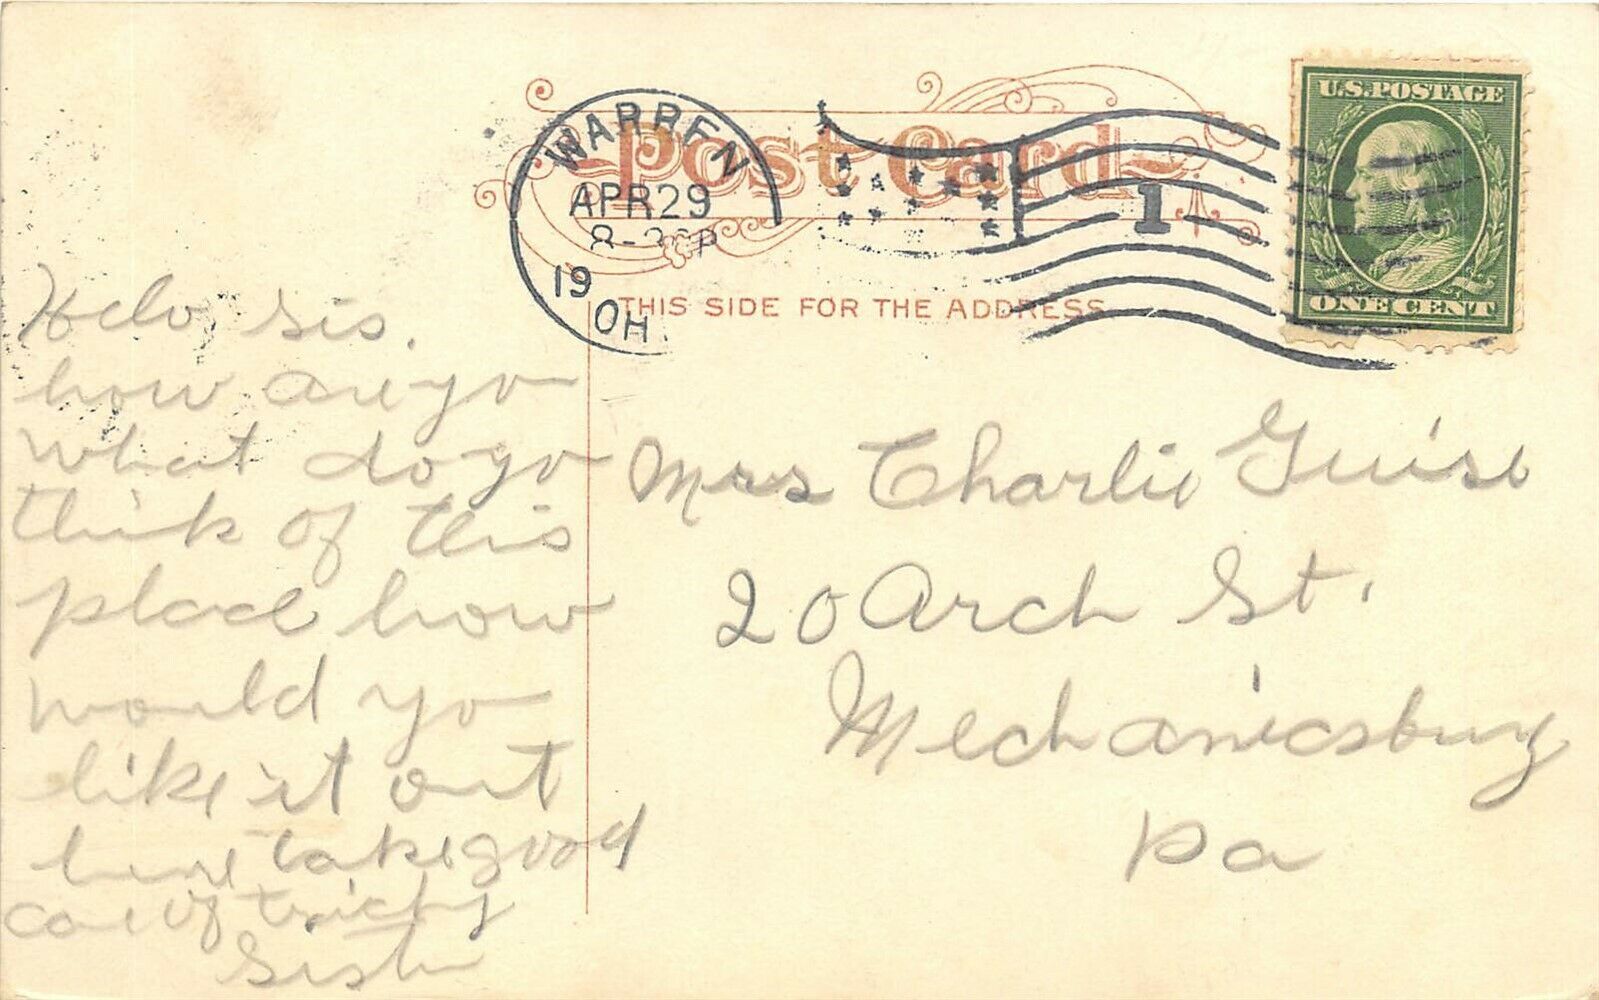 Post Card
WARREN
APR 29
8-30P
19
OH
1
U.S. POSTAGE
ONE CENT
THIS SIDE FOR THE ADDRESS
Helo Sis.
how are yo
what do yo
think of this
place how
would yo
like it out
here take good
care of tricky
Sister
Mrs Charlie Guise
20 Arch St.
Mechanicsburg
Pa